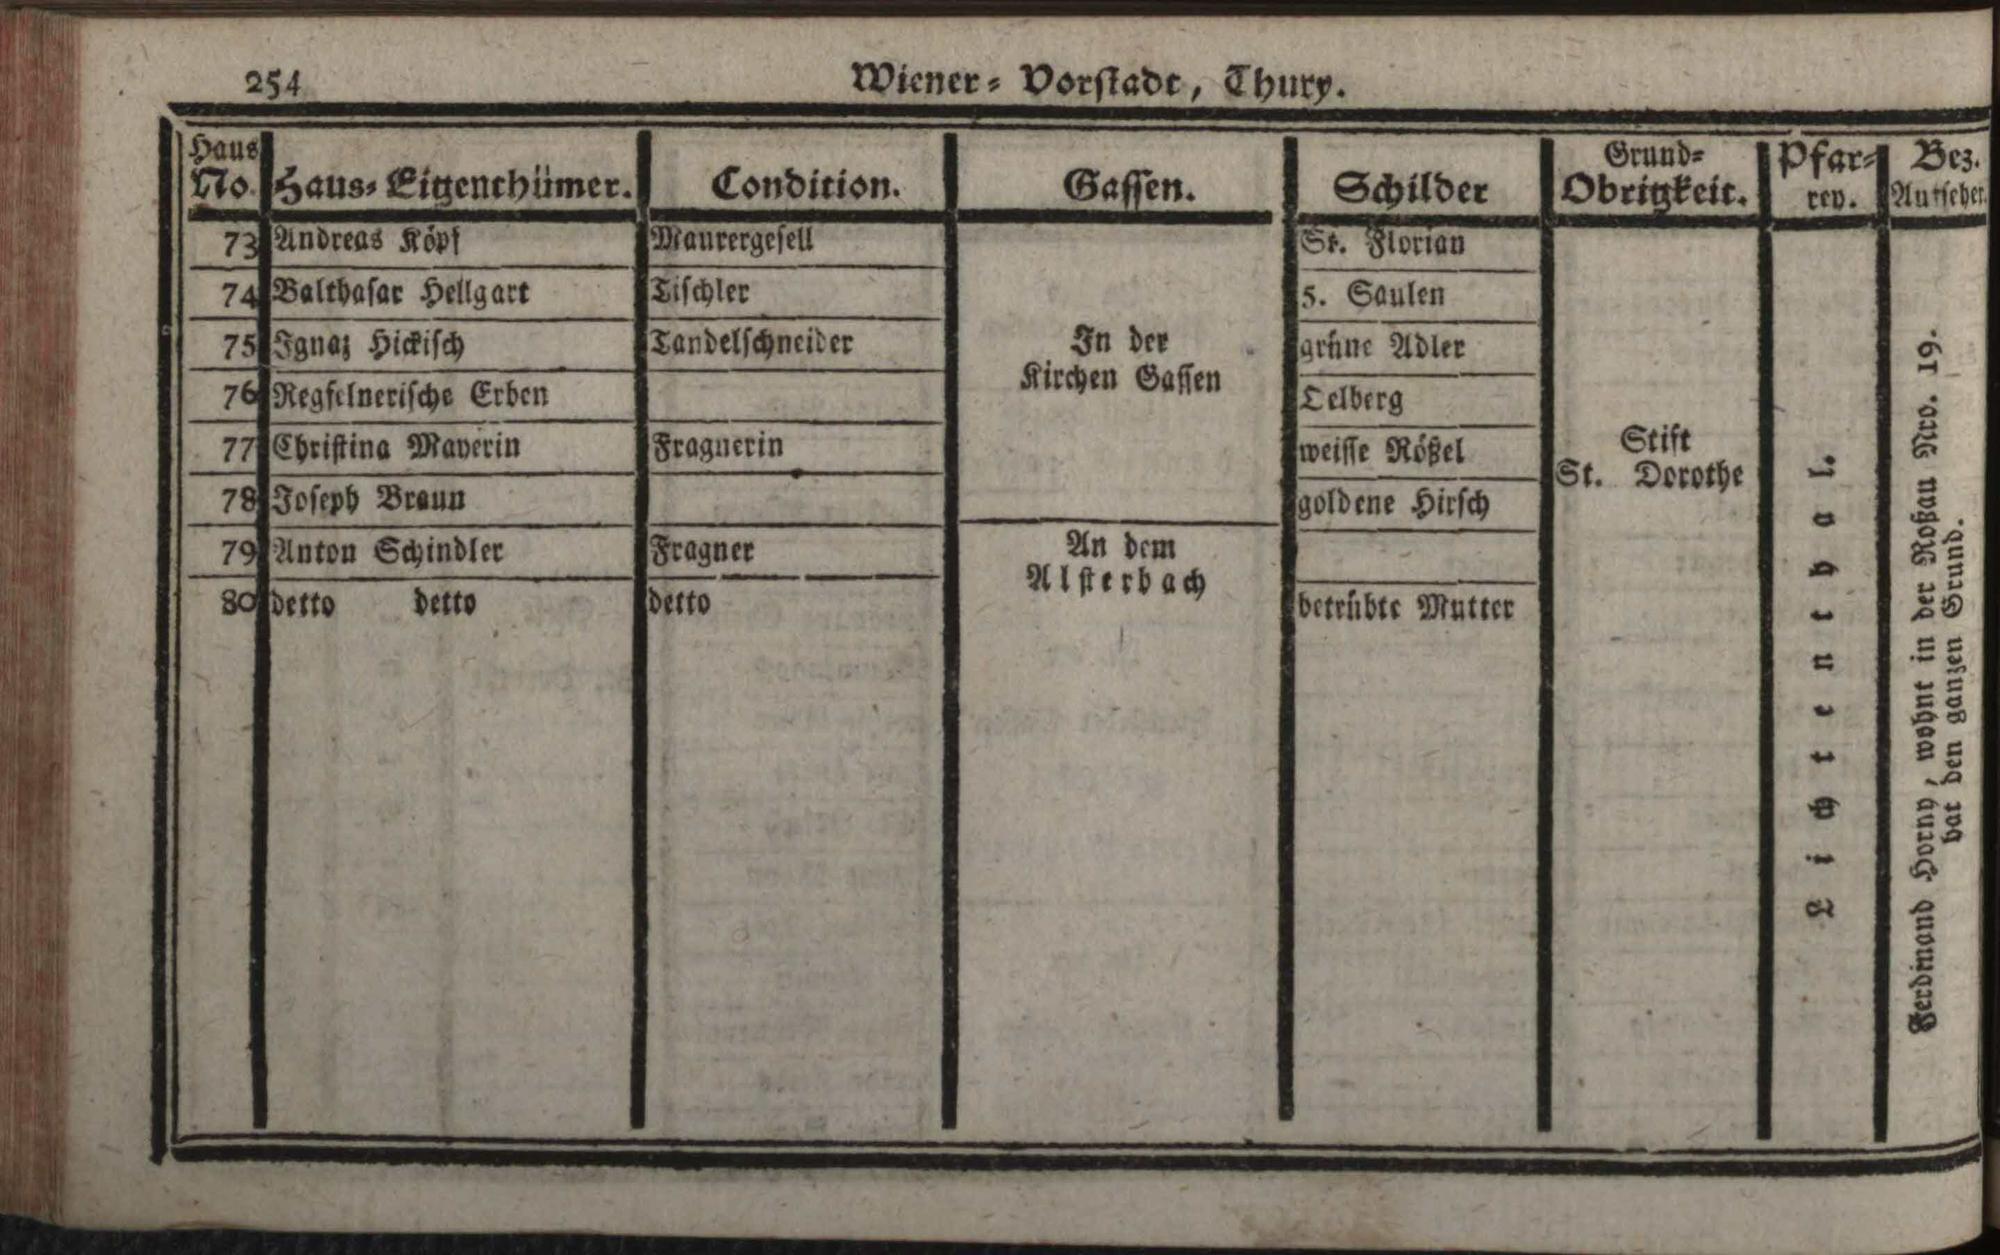 254
Wiener-Vorstadt, Thury.
Haus No. Haus-Eigenthümer. Condition. Gassen. Schilder Grund-Obrigkeit. Pfarrey. Bez. Aufseher.
73 Andreas Köpf Maurergesell St. Florian
74 Balthasar Hellgart Tischler 5. Saulen
75 Ignaz Hickisch Tandelschneider grüne Adler
76 Regfelnerische Erben Oelberg
77 Christina Mayerin Fragnerin weisse Rößel
78 Joseph Braun goldene Hirsch
79 Anton Schindler Fragner
80 detto detto detto betrübte Mutter
In der
Kirchen Gassen
An dem
Alsterbach
Stift
St. Dorothe
Lichtenthal.
Ferdinand Horny, wohnt in der Roßau Nro. 19.
hat den ganzen Grund.